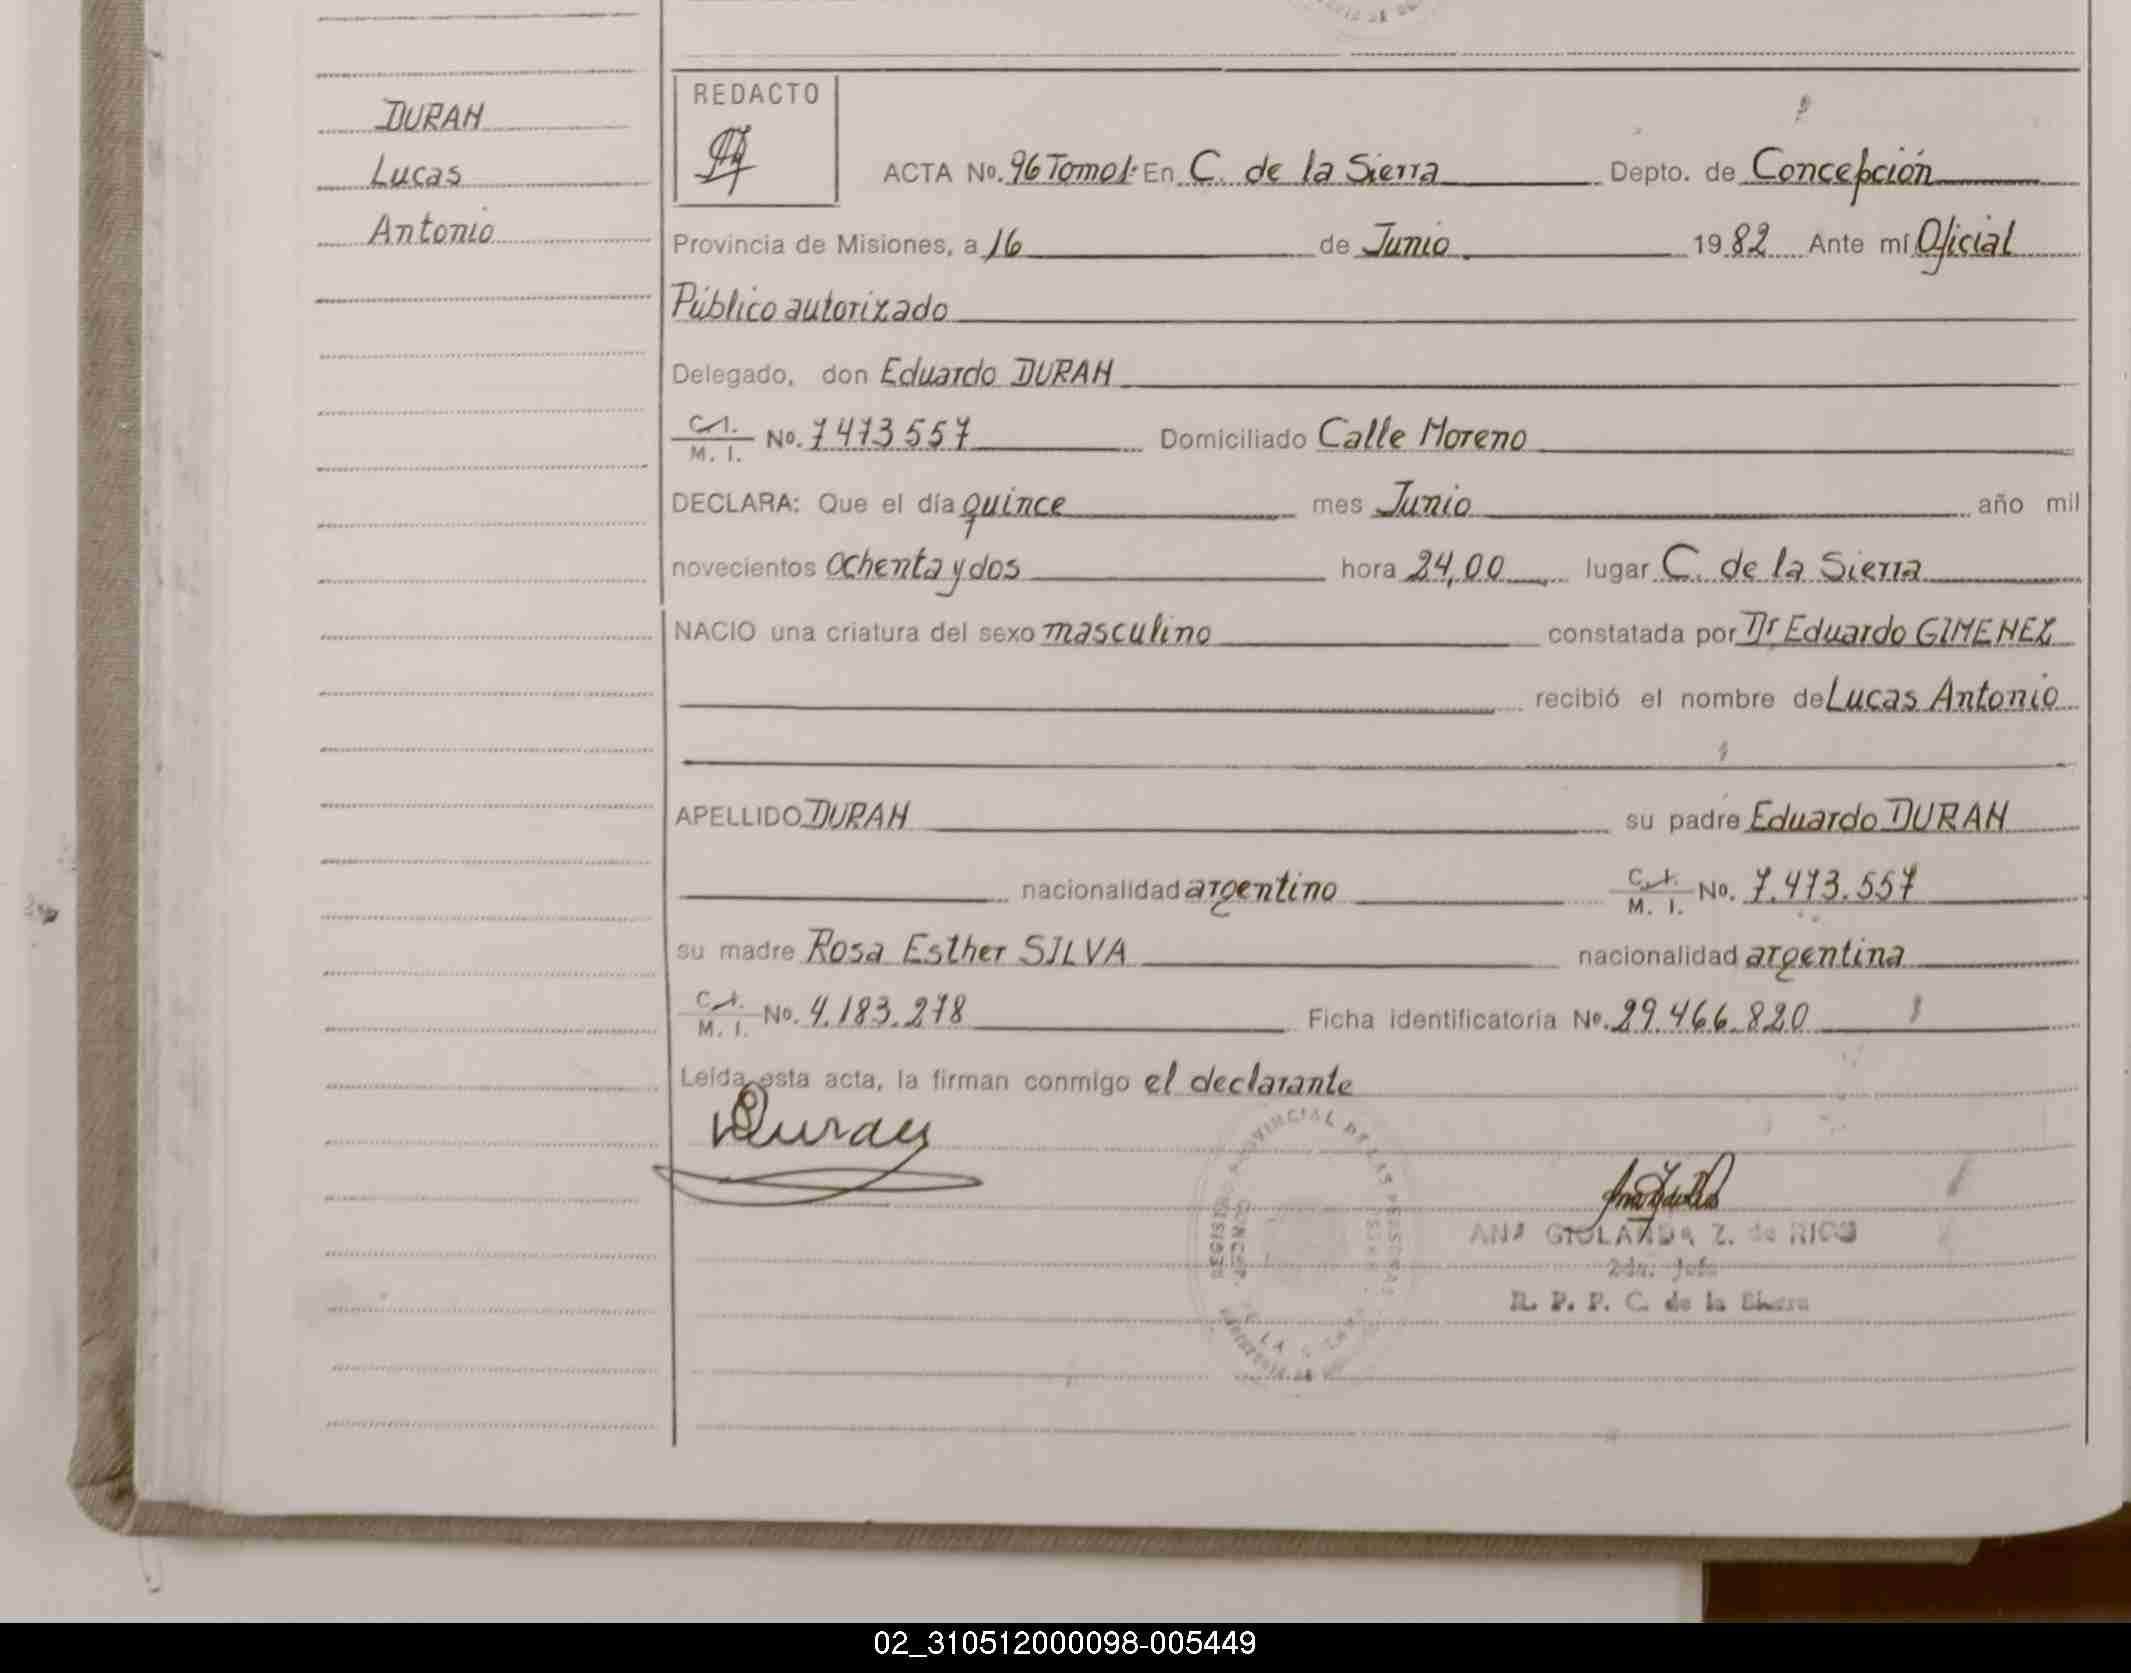 DURAN
Lucas
Antonio
REDACTO
ACTA No. 96 Tomo 1. En C. de la Sierra Depto. de Concepción
Provincia de Misiones, a 16 de Junio 1982 Ante mí Oficial
Público autorizado
Delegado, don Eduardo DURAN
C.I.
M. I. No. 7473557 Domiciliado Calle Moreno
DECLARA: Que el día quince mes Junio año mil
novecientos ochenta y dos hora 24,00 lugar C. de la Sierra
NACIO una criatura del sexo masculino constatada por Dr Eduardo GIMENEZ
recibió el nombre de Lucas Antonio
APELLIDO DURAN su padre Eduardo DURAN
nacionalidad argentino C.I. M. I. No. 7.473.557
su madre Rosa Esther SILVA nacionalidad argentina
C.I.
M. I. No. 4.183.278 Ficha identificatoria No. 29.466.820
Leída esta acta, la firman conmigo el declarante
Duran
REGISTRO PROVINCIAL DE LAS PERSONAS
ANA Z. de RIOS
R. P. P. C. de la Sierra
02_310512000098-005449